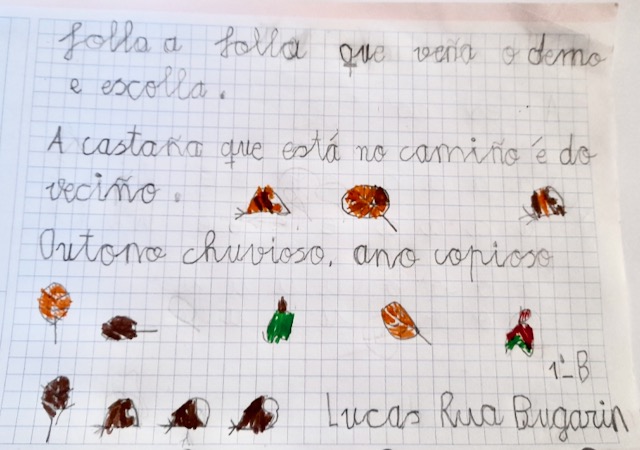 folla a folla que veña o demo
e escolla.
A castaña que está no camiño é do
veciño.
Outono chuvioso, ano copioso
1º-B
Lucas Rua Bugarin